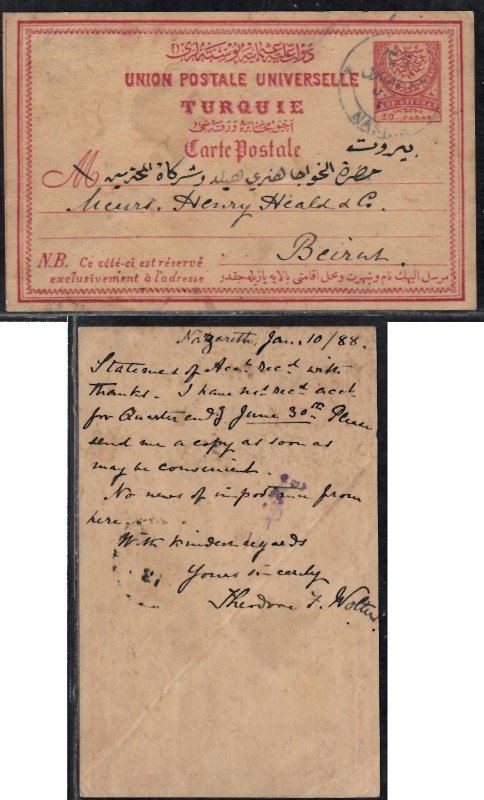 دولت علیۀ عثمانیه پوسته لری
UNION POSTALE UNIVERSELLE
TURQUIE
Carte Postale
بيروت
M حضرة الخواجا هنري هيلد وشركاه المحترمين
Messrs. Henry Heald & Co.
Beirut.
N.B. Ce côté-ci est réservé
exclusivement à l'adresse
مرسل اليهك نام و شهرت و محل اقامتى بالايه يازيله جقدر
20 PARAS
NAZARETH
Nazareth, Jan. 10/88.
Statement of Acct. rec.d with
thanks. I have not rec.d acct.
for Quarter end.g June 30th. Please
send me a copy as soon as
may be convenient.
No news of importance from
here.
With kindest regards
Yours sincerely
Theodore F. Wolters.